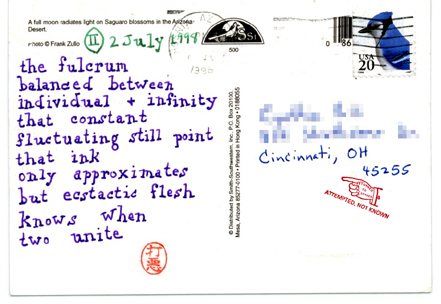 A full moon radiates light on Saguaro blossoms in the Arizona
Desert.
Photo © Frank Zullo
II 2 July 1998
the fulcrum
balanced between
individual + infinity
that constant
fluctuating still point
that ink
only approximates
but ecstactic flesh
knows when
two unite
打悪
500
© Distributed by Smith-Southwestern, Inc., P.O. Box 20100,
Mesa, Arizona 85277-0100 • Printed in Hong Kong
0 86
USA
20
Cincinnati, OH
45255
ATTEMPTED, NOT KNOWN